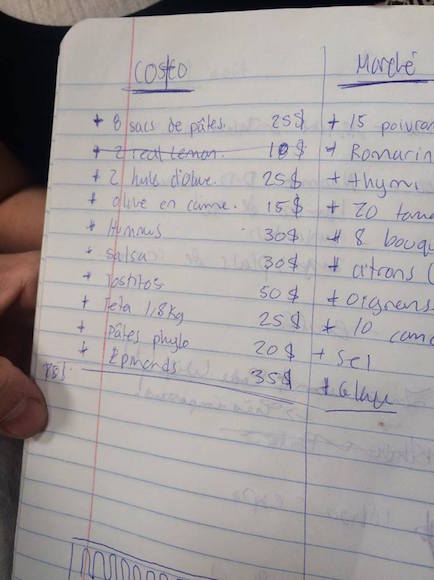 COSTCO
Marché
+ 8 sacs de pâtes. 25$
+ 2 real lemon. 10$
+ 2 huile d'olive. 25$
+ olive en canne. 15$
+ Hummus 30$
+ Salsa 30$
+ Tostitos 50$
+ Feta 1,8kg 25$
+ Pâtes phylo 20$
+ 35$
+ 15 poivron
+ Romarin
+ thym
+ 20
+ 8 bouq
+ citrons (
+ oignons
+ 10
+ Sel
+ Glace